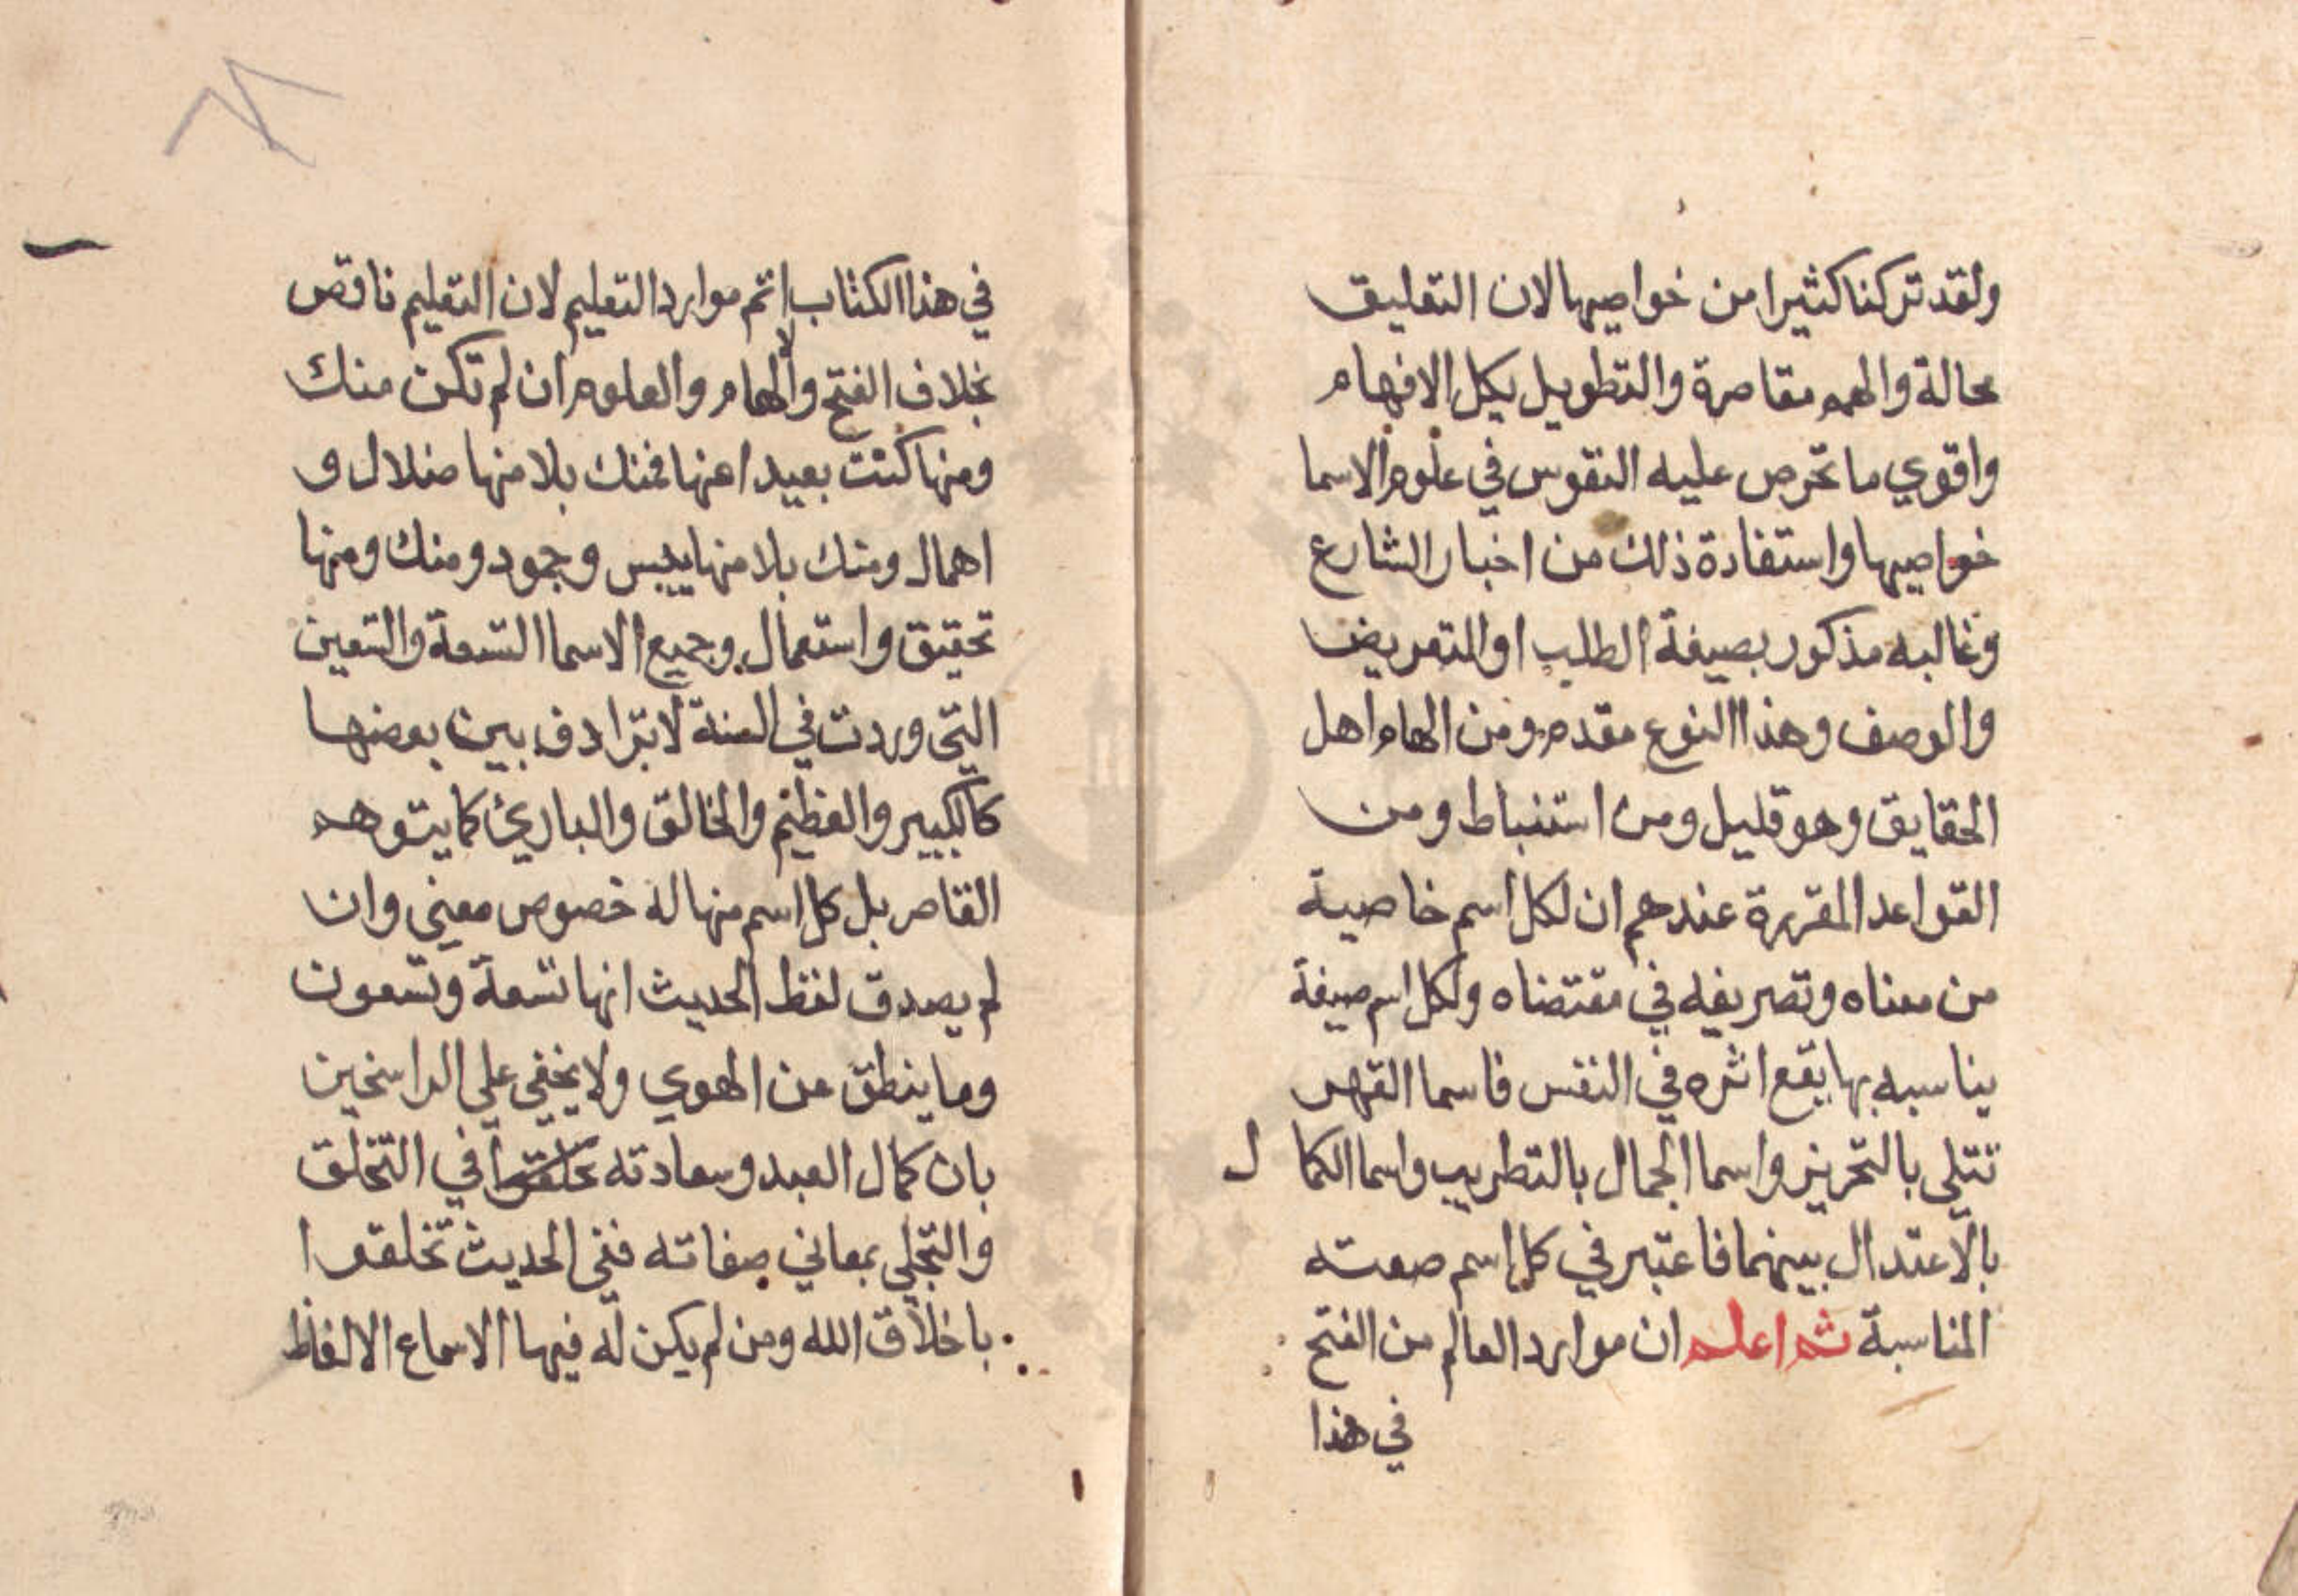 ولقد تركنا كثيرا من خواصيها لان التعليق
عجالة والهمم مقاصرة والتطويل يكل الافهام
واقوي ما تحرص عليه النفوس في علوم الاسما
خواصيها واستفادة ذلك من اخبار الشارع
وغالبه مذكور بصيغة الطلب او التعريض
والوصف وهذا النوع مقدم ومن الهام اهل
الحقايق وهو قليل ومن استنباط ومن
القواعد المقررة عندهم ان لكل اسم خاصية
من معناه وتصريفه في مقتضاه ولكل اسم صيغة
يناسبه بها يقع اثره في النفس فاسما القهر
تتلي بالتحزين واسما الجمال بالتطريب واسما الكما ل
بالاعتدال بينهما فاعتبر في كل اسم صعته
المناسبة ثم اعلم ان موارد العالم من الفتح
في هذا
٨٢
في هذا الكتاب اتم موارد التعليم لان التعليم ناقص
بخلاف الفتح والالهام والعلوم ان لم تكن منك
ومنها كنت بعيدا عنها فمنك بلا منها ضلال و
اهمال ومنك بلا منها يبس وجمود ومنك ومنها
تحقيق واستعمال وجميع الاسما التسعة والتسعين
التي وردت في السنة لا ترادف بين بعضها
كالكبير والعظيم والخالق والباريء كما يتوهم
القاصر بل كل اسم منها له خصوص معني وان
لم يصدق لفظ الحديث انها تسعة وتسعون
وما ينطق عن الهوي ولا يخفي علي الراسخين
بان كمال العبد وسعادته في التخلق
والتجلي بمعاني صفاته ففي الحديث تخلقوا
باخلاق الله ومن لم يكن له فيها الاسماع الالفاظ